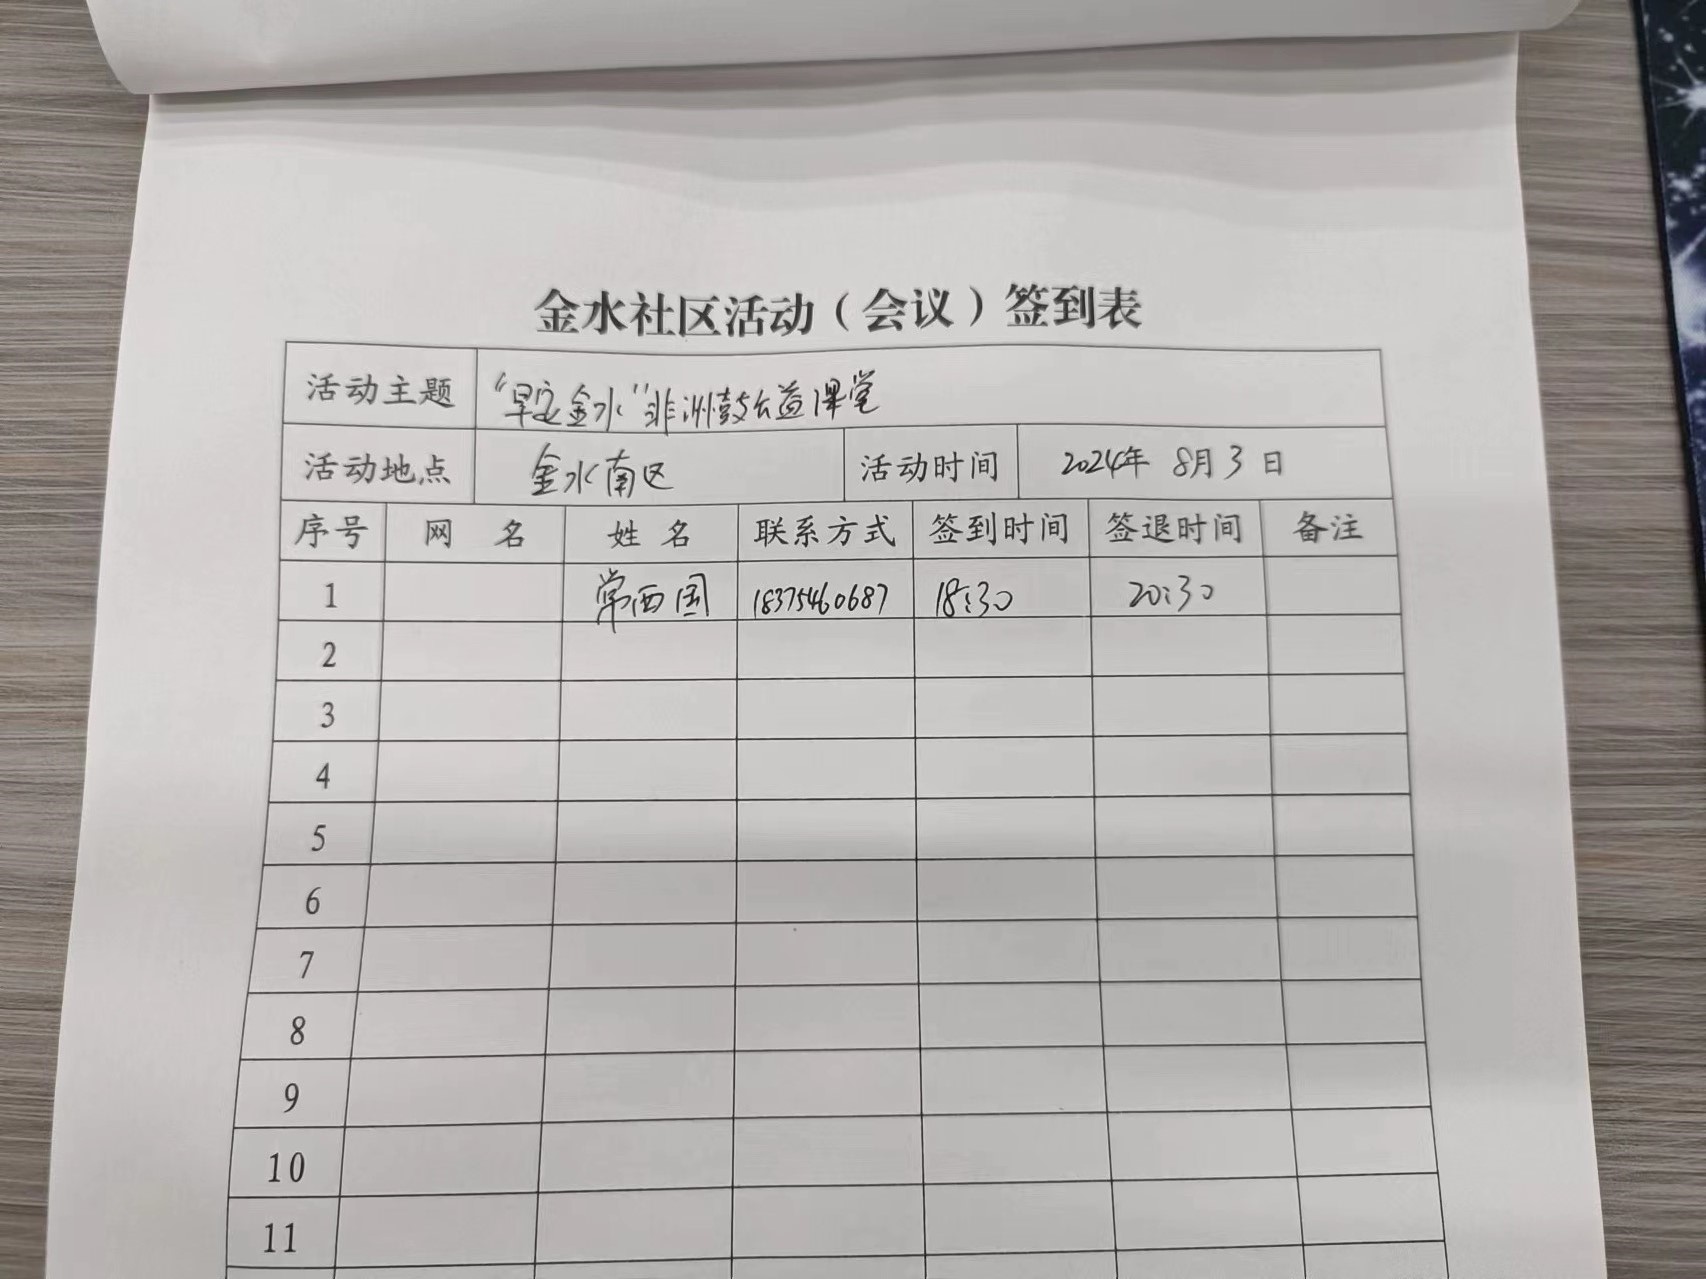 金水社区活动（会议）签到表
活动主题 “早定金水”非洲鼓公益课堂
活动地点 金水南区 活动时间 2024年 8月3日
序号 网 名 姓 名 联系方式 签到时间 签退时间 备注
1 常西国 18375460687 18:30 20:30
2
3
4
5
6
7
8
9
10
11